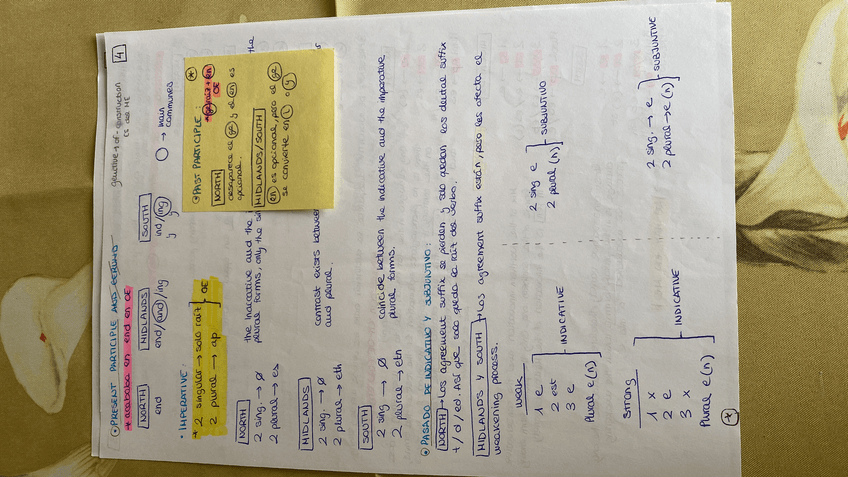 4
genitive + of-construction
es del ME
⊙PRESENT PARTICIPLE AND GERUND
* acababa en end en OE
NORTH
end
MIDLANDS
end/and/ing
SOUTH
ind/ing
y y
○ → main
communes
• IMPERATIVE:
* 2 singular → solo raíz
2 plural → ap
OE
NORTH
2 sing. → ∅
2 plural → es
the indicative and the i
the
plural forms, only the sin
MIDLANDS
2 sing. → ∅
2 plural → eth
contrast exists between
and plural.
SOUTH
2 sing → ∅
2 plural → eth
coincide between the indicative and the imperative
plural forms.
⊙PAST PARTICIPLE:
*
OE
NORTH
desaparece el ge y el en es
opcional.
MIDLANDS/SOUTH
en es opcional, pero el ge
se convierte en i o y
⊙ PASADO DE INDICATIVO Y SUBJUNTIVO:
NORTH → Los agreement suffix se pierden y solo quedan los dental suffix
t/d/ed. Así que solo queda la raíz del verbo.
MIDLANDS Y SOUTH → Los agreement suffix están, pero les afecta el
weakening process.
weak
1 e
2 est
3 e
Plural e(n)
INDICATIVE
2 sing e
2 plural (n)
SUBJUNTIVO
Strong
1 x
2 e
3 x
Plural e(n)
INDICATIVE
2 sing. → e
2 plural → e(n)
SUBJUNTIVE
*